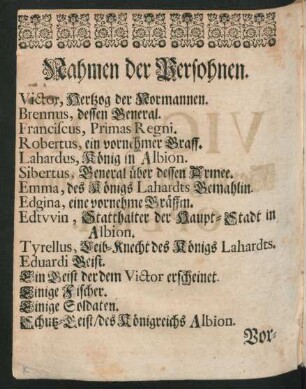 Nahmen der Persohnen.
Victor, Hertzog der Normannen.
Brennus, dessen General.
Franciscus, Primas Regni.
Robertus, ein vornehmer Graff.
Lahardus, König in Albion.
Sibertus, General über dessen Armee.
Emma, des Königs Lahardts Gemahlin.
Edgina, eine vornehme Gräffin.
Edtvvin, Statthalter der Haupt-Stadt in
Albion.
Tyrellus, Leib-Knecht des Königs Lahardts.
Eduardi Geist.
Ein Geist der dem Victor erscheinet.
Einige Fischer.
Einige Soldaten.
Schutz-Geist/des Königreichs Albion.
Vor-